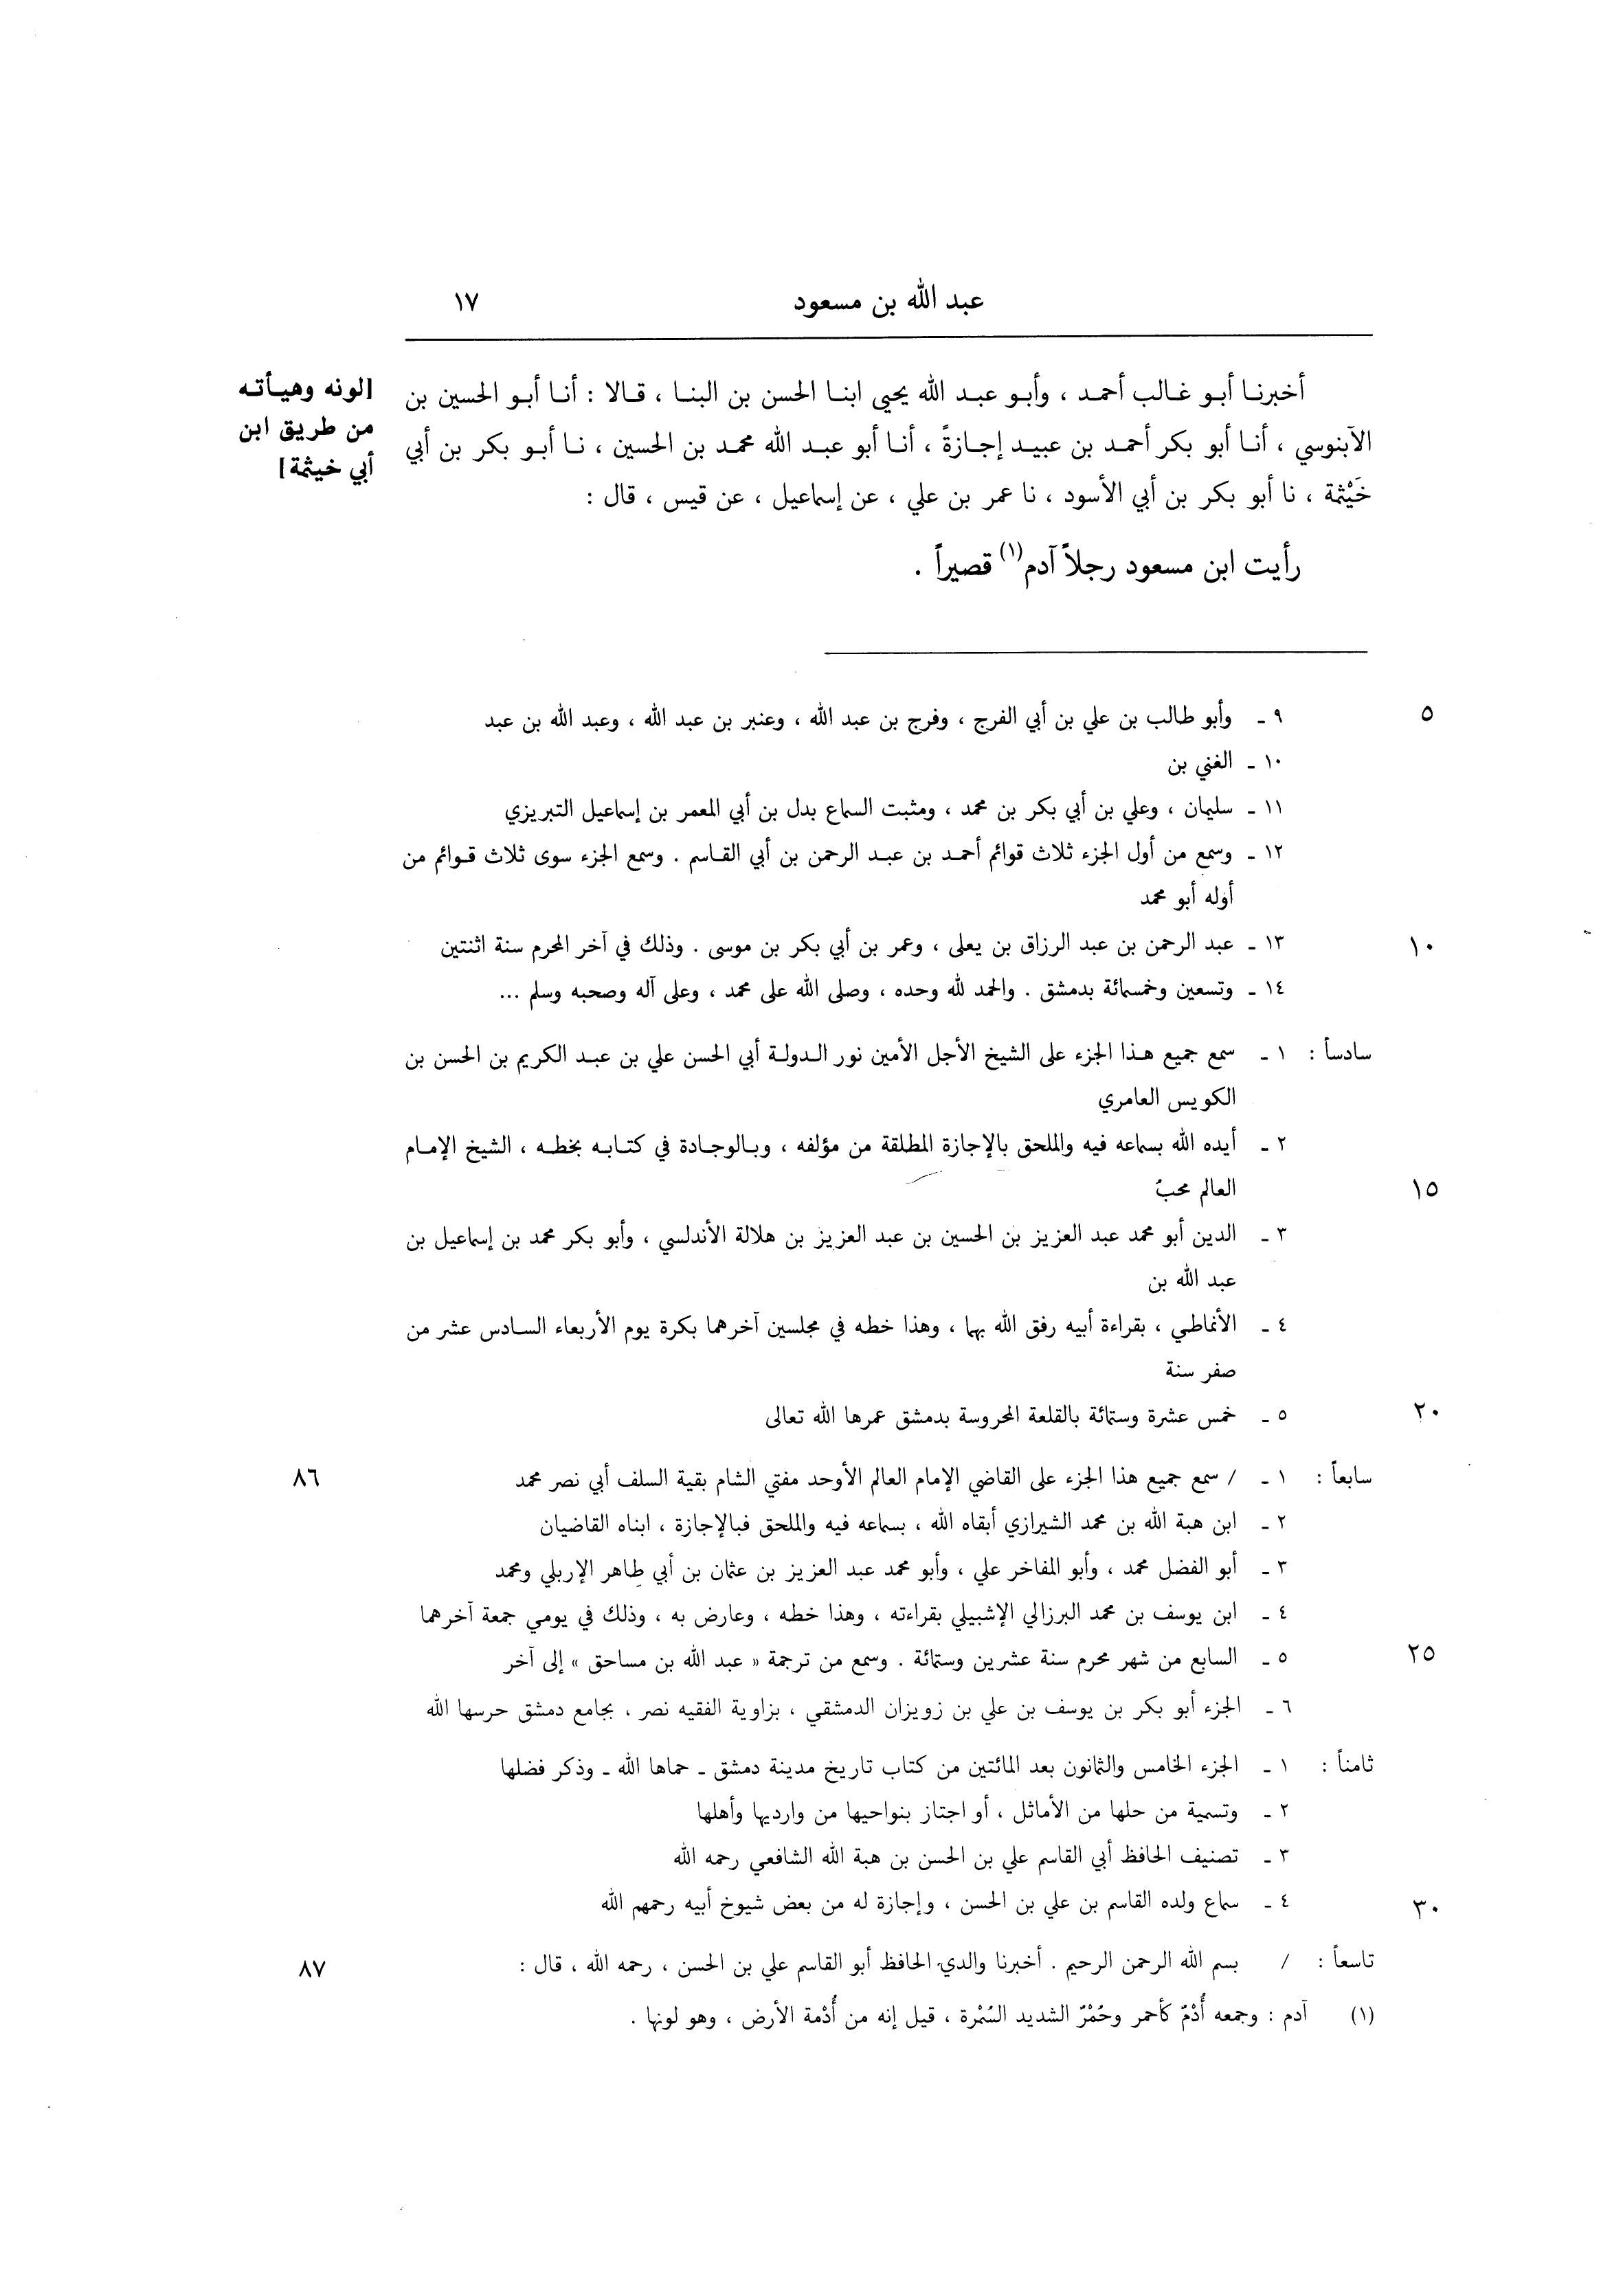 عبد الله بن مسعود ١٧
أخبرنا أبو غالب أحمد ، وأبو عبد الله يحيى ابنا الحسن بن البنا ، قالا : أنا أبو الحسين بن
الآبنوسي ، أنا أبو بكر أحمد بن عبيد إجازةً ، أنا أبو عبد الله محمد بن الحسين ، نا أبو بكر بن أبي
خَيْثمة ، نا أبو بكر بن أبي الأسود ، نا عمر بن علي ، عن إسماعيل ، عن قيس ، قال :
[لونه وهيأته
من طريق ابن
أبي خيثمة]
رأيت ابن مسعود رجلاً آدم(١) قصيراً .
٩ ـ وأبو طالب بن علي بن أبي الفرج ، وفرج بن عبد الله ، وعنبر بن عبد الله ، وعبد الله بن عبد
٥
١٠ ـ الغني بن
١١ ـ سليمان ، وعلي بن أبي بكر بن محمد ، ومثبت السماع بدل بن أبي المعمر بن إسماعيل التبريزي
١٢ ـ وسمع من أول الجزء ثلاث قوائم أحمد بن عبد الرحمن بن أبي القاسم . وسمع الجزء سوى ثلاث قوائم من
أوله أبو محمد
١٣ ـ عبد الرحمن بن عبد الرزاق بن يعلى ، وعمر بن أبي بكر بن موسى . وذلك في آخر المحرم سنة اثنتين
١٠
١٤ ـ وتسعين وخمسمائة بدمشق . والحمد لله وحده ، وصلى الله على محمد ، وعلى آله وصحبه وسلم ...
سادساً : ١ ـ سمع جميع هذا الجزء على الشيخ الأجل الأمين نور الدولة أبي الحسن علي بن عبد الكريم بن الحسن بن
الكويس العامري
٢ ـ أيده الله بسماعه فيه والملحق بالإجازة المطلقة من مؤلفه ، وبالوجادة في كتابه بخطه ، الشيخ الإمام
العالم محبّ
١٥
٣ ـ الدين أبو محمد عبد العزيز بن الحسين بن عبد العزيز بن هلالة الأندلسي ، وأبو بكر محمد بن إسماعيل بن
عبد الله بن
٤ ـ الأنماطي ، بقراءة أبيه رفق الله بهما ، وهذا خطه في مجلسين آخرهما بكرة يوم الأربعاء السادس عشر من
صفر سنة
٥ ـ خمس عشرة وستمائة بالقلعة المحروسة بدمشق عمرها الله تعالى
٢٠
سابعاً : ١ ـ / سمع جميع هذا الجزء على القاضي الإمام العالم الأوحد مفتي الشام بقية السلف أبي نصر محمد
٨٦
٢ ـ ابن هبة الله بن محمد الشيرازي أبقاه الله ، بسماعه فيه والملحق فبالإجازة ، ابناه القاضيان
٣ ـ أبو الفضل محمد ، وأبو المفاخر علي ، وأبو محمد عبد العزيز بن عثمان بن أبي طاهر الإربلي ومحمد
٤ ـ ابن يوسف بن محمد البرزالي الإشبيلي بقراءته ، وهذا خطه ، وعارض به ، وذلك في يومي جمعة آخرهما
٥ ـ السابع من شهر محرم سنة عشرين وستمائة . وسمع من ترجمة « عبد الله بن مساحق » إلى آخر
٢٥
٦ ـ الجزء أبو بكر بن يوسف بن علي بن زويزان الدمشقي ، بزاوية الفقيه نصر ، بجامع دمشق حرسها الله
ثامناً : ١ ـ الجزء الخامس والثمانون بعد المائتين من كتاب تاريخ مدينة دمشق ـ حماها الله ـ وذكر فضلها
٢ ـ وتسمية من حلها من الأماثل ، أو اجتاز بنواحيها من وارديها وأهلها
٣ ـ تصنيف الحافظ أبي القاسم علي بن الحسن بن هبة الله الشافعي رحمه الله
٤ ـ سماع ولده القاسم بن علي بن الحسن ، وإجازة له من بعض شيوخ أبيه رحمهم الله
٣٠
تاسعاً : / بسم الله الرحمن الرحيم . أخبرنا والدي الحافظ أبو القاسم علي بن الحسن ، رحمه الله ، قال :
٨٧
(١) آدم : وجمعه أُدْمٌ كأحمر وحُمْرٌ الشديد السُمْرة ، قيل إنه من أُدْمة الأرض ، وهو لونها .